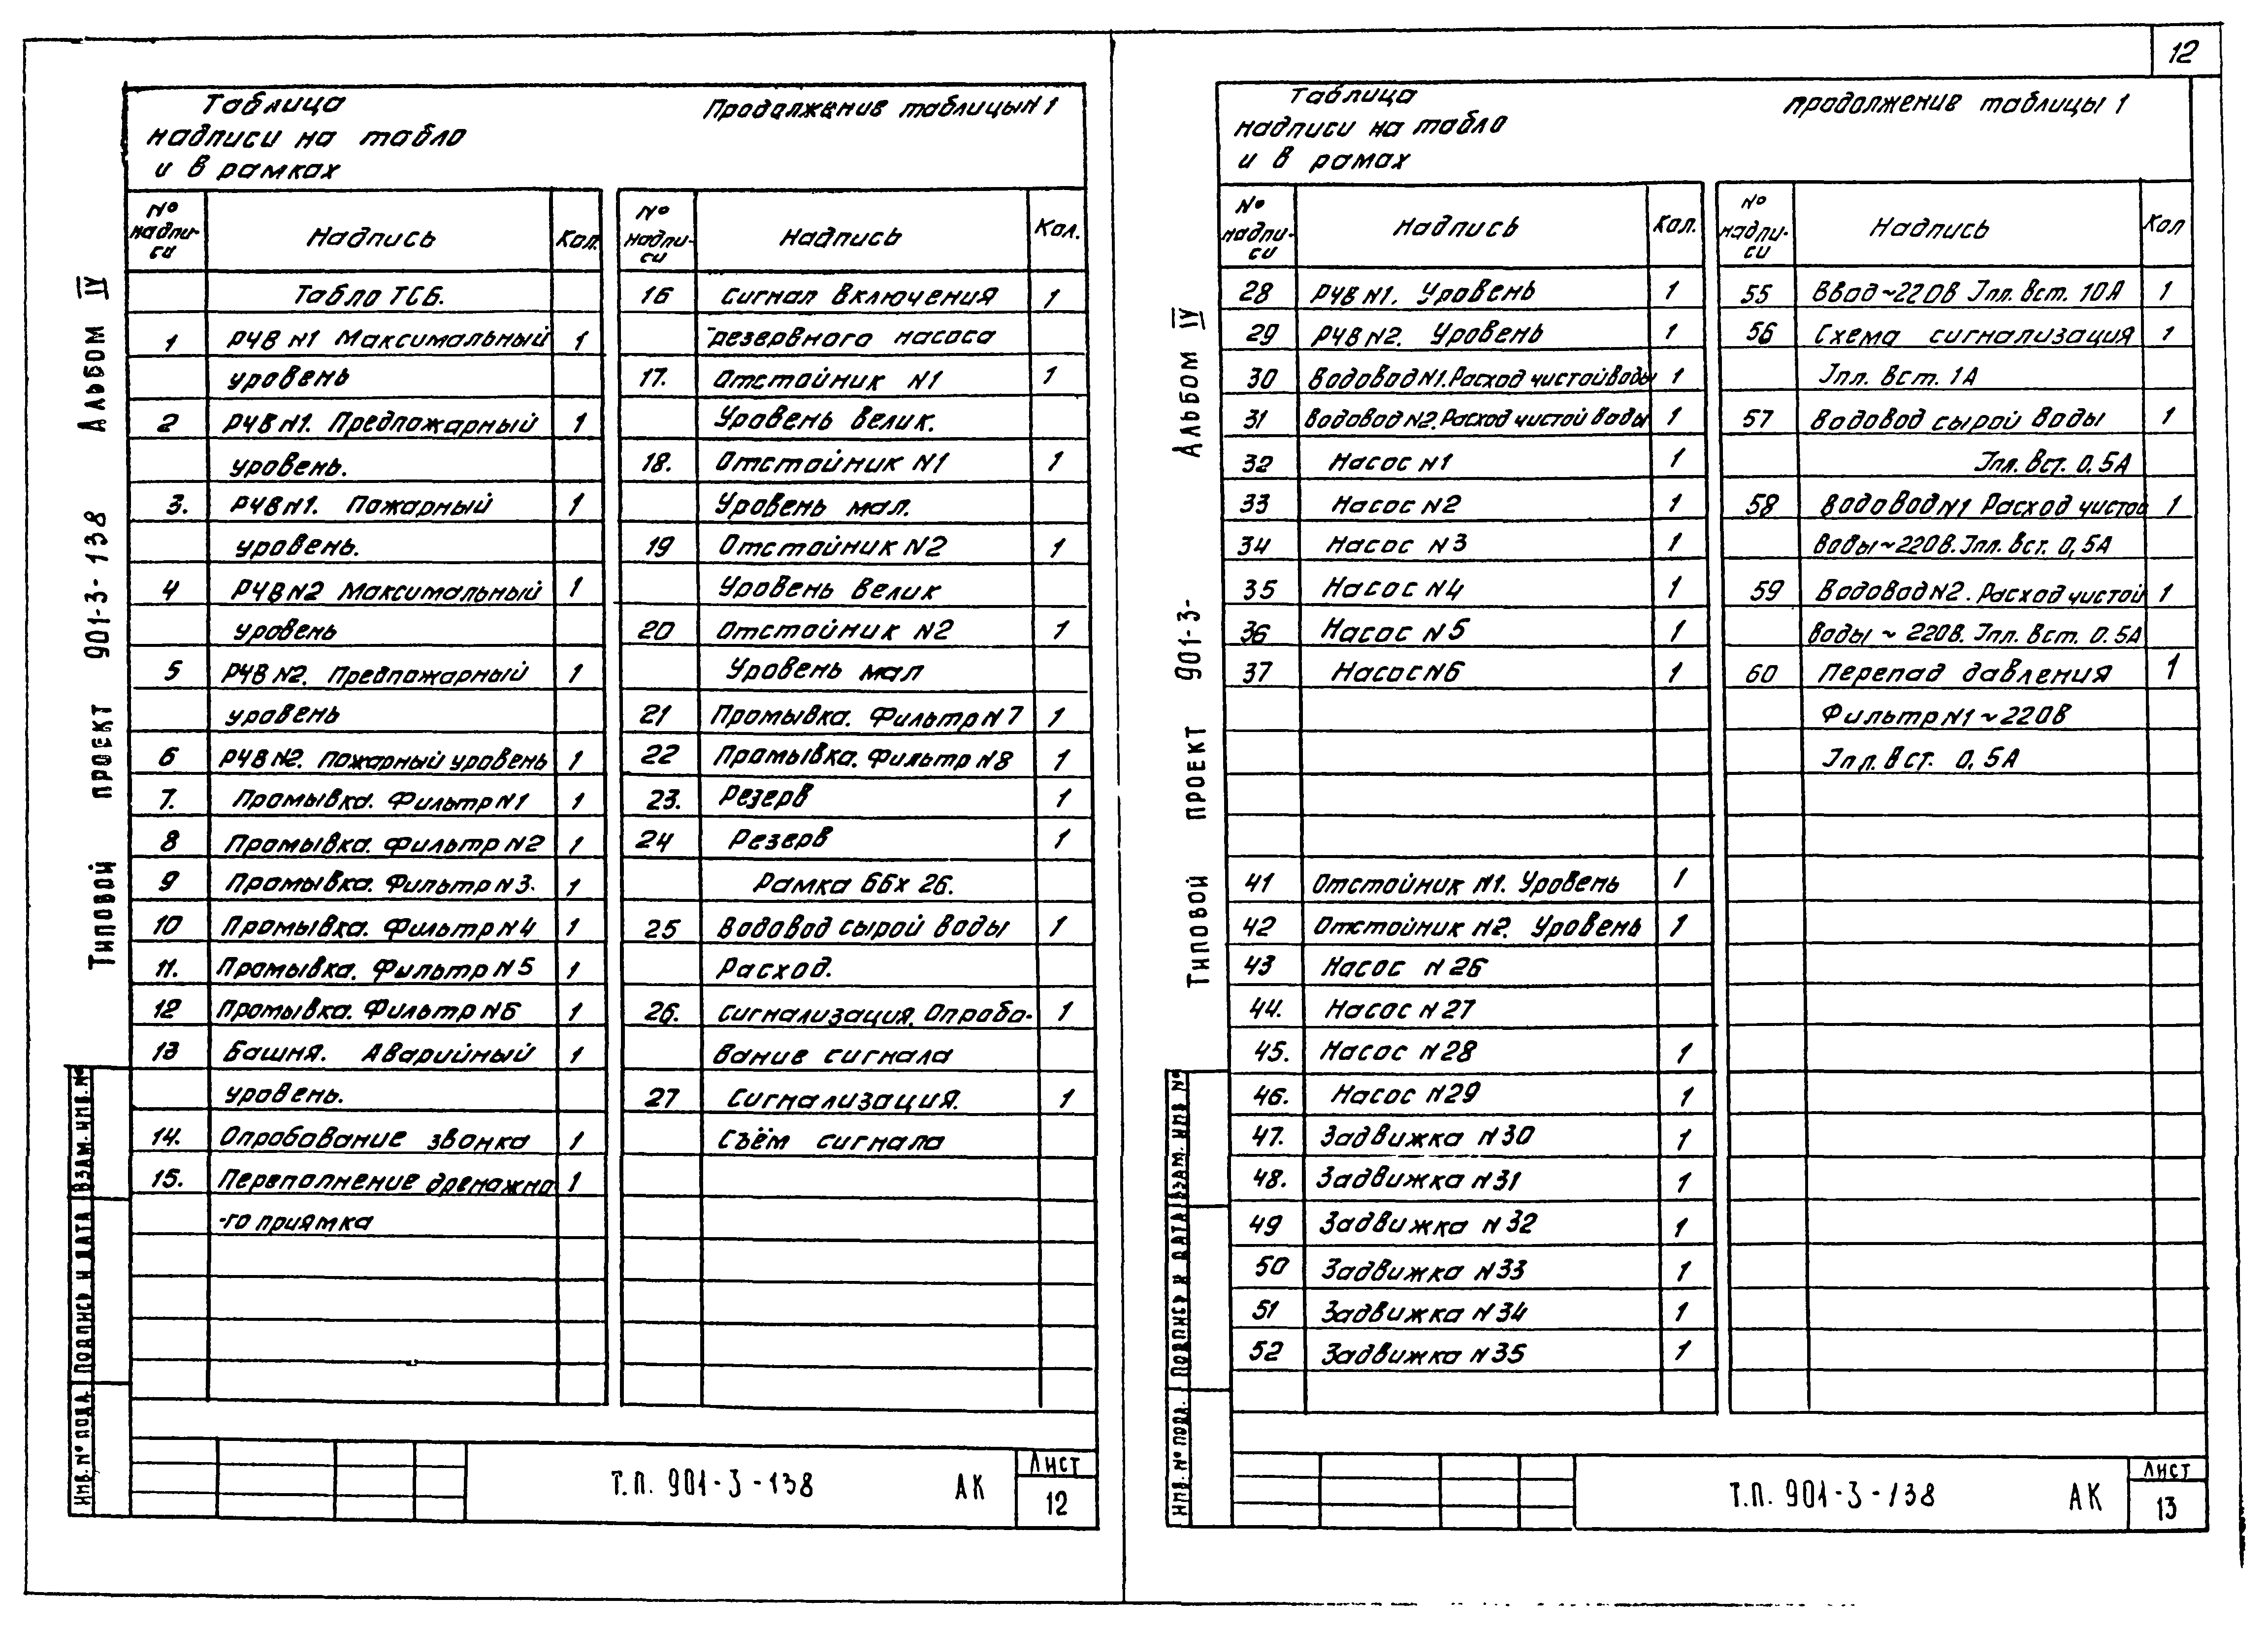 12
Таблица
надписи на табло
и в рамках
Продолжение таблицы N1
№ надпи-си Надпись Кол.
Табло ТСБ.
1 РЧВ N1 Максимальный 1
уровень
2 РЧВ N1. Предпожарный 1
уровень.
3. РЧВ N1. Пожарный 1
уровень.
4 РЧВ N2 Максимальный 1
уровень
5 РЧВ N2. Предпожарный 1
уровень
6 РЧВ N2. Пожарный уровень 1
7. Промывка. Фильтр N1 1
8 Промывка. Фильтр N2 1
9 Промывка. Фильтр N3. 1
10 Промывка. Фильтр N4 1
11. Промывка. Фильтр N5 1
12 Промывка. Фильтр N6 1
13 Башня. Аварийный 1
уровень.
14. Опробование звонка 1
15. Переполнение дренажно 1
-го приямка
№ надпи-си Надпись Кол.
16 Сигнал включения 1
резервного насоса
17. Отстойник N1 1
Уровень велик.
18. Отстойник N1 1
Уровень мал.
19 Отстойник N2 1
Уровень велик
20 Отстойник N2 1
Уровень мал
21 Промывка. Фильтр N7 1
22 Промывка. Фильтр N8 1
23. Резерв 1
24 Резерв 1
Рамка 66х26.
25 Водовод сырой воды 1
Расход.
26. Сигнализация. Опробо- 1
вание сигнала
27 Сигнализация. 1
Съём сигнала
Типовой проект 901-3-138 Альбом IV
Инв. № подл. Подпись и дата Взам. инв. №
Т.П. 901-3-138 АК
Лист
12
Таблица
надписи на табло
и в рамах
продолжение таблицы 1
№ надпи-си Надпись Кол.
28 РЧВ N1. Уровень 1
29 РЧВ N2. Уровень 1
30 Водовод N1. Расход чистой воды 1
31 Водовод N2. Расход чистой воды 1
32 Насос N1 1
33 Насос N2 1
34 Насос N3 1
35 Насос N4 1
36 Насос N5 1
37 Насос N6 1
41 Отстойник N1. Уровень 1
42 Отстойник N2. Уровень 1
43 Насос N26
44. Насос N27
45. Насос N28 1
46. Насос N29 1
47. Задвижка N30 1
48. Задвижка N31 1
49 Задвижка N32 1
50 Задвижка N33 1
51 Задвижка N34 1
52 Задвижка N35 1
№ надпи-си Надпись Кол
55 Ввод ~220В Iпл. вст. 10А 1
56 Схема сигнализация 1
Iпл. вст. 1А
57 Водовод сырой воды 1
Iпл. вст. 0.5А
58 Водовод N1 Расход чистой 1
воды ~220В. Iпл. вст. 0,5А
59 Водовод N2. Расход чистой 1
воды ~ 220В. Iпл. вст. 0.5А
60 Перепад давления 1
Фильтр N1 ~220В
Iпл. вст. 0,5А
Типовой проект 901-3- Альбом IV
Инв. № подл. Подпись и дата Взам. инв №
Т.П. 901-3-138 АК
Лист
13